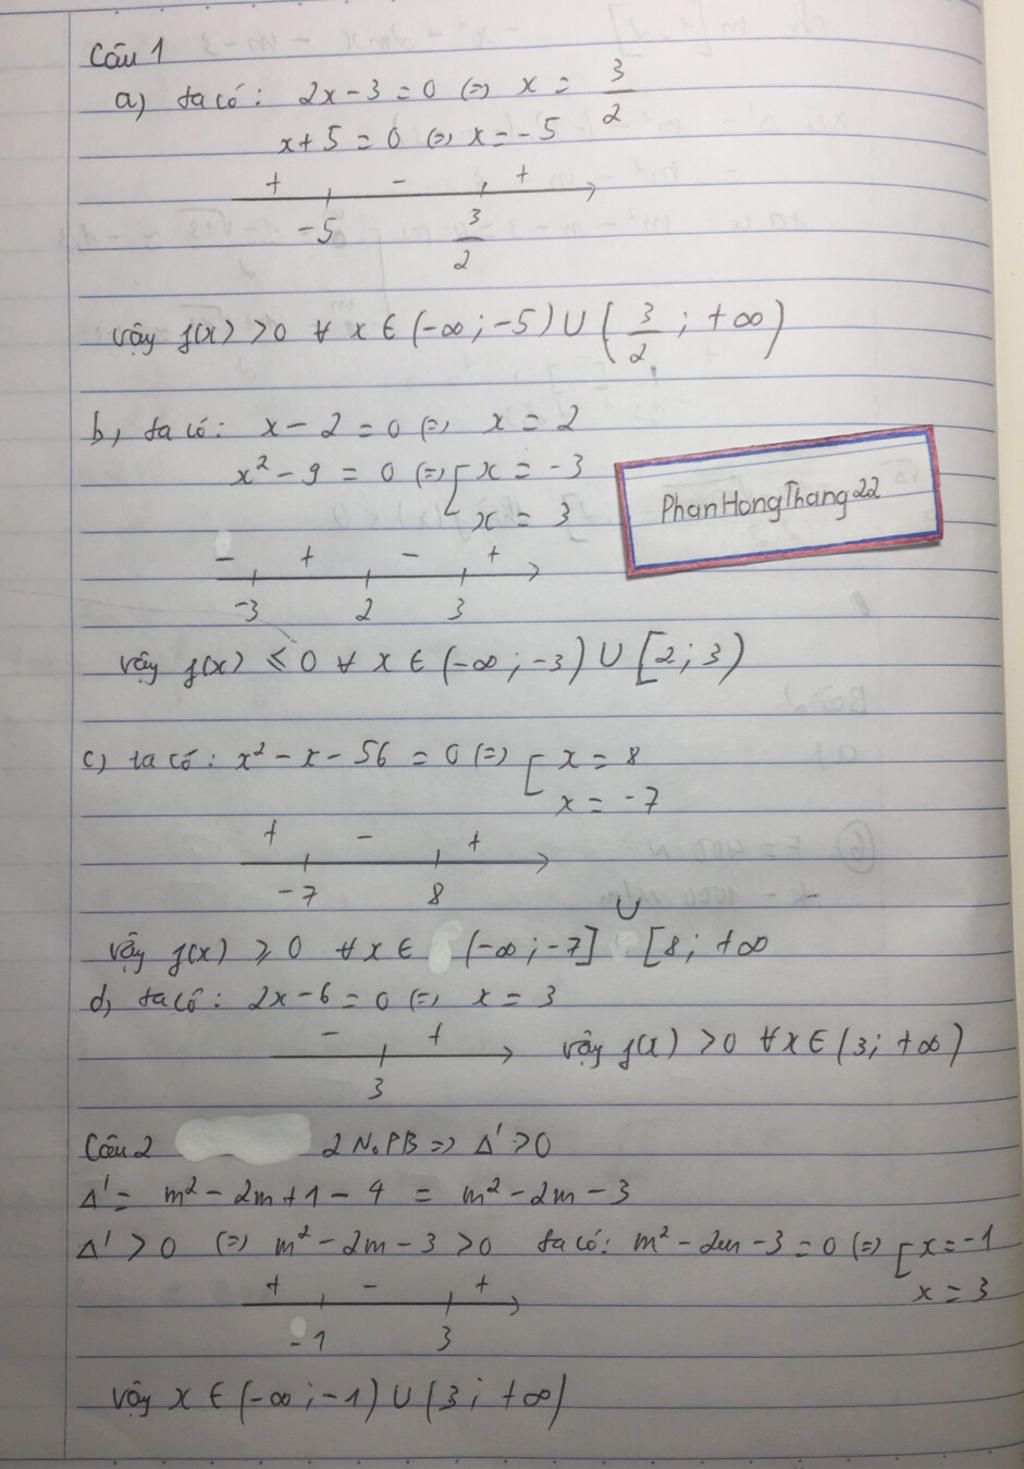 Câu 1
a) ta có: 2x - 3 = 0 (=) x = 3/2
x + 5 = 0 (=) x = -5
+ - +
-5 3/2
vậy f(x) > 0 ∀ x ∈ (-∞; -5) ∪ (3/2; +∞)
b, ta có: x - 2 = 0 (=) x = 2
x² - 9 = 0 (=) [ x = -3
x = 3
PhanHongThang22
- + - +
-3 2 3
vậy f(x) ≤ 0 ∀ x ∈ (-∞; -3) ∪ [2; 3)
c) ta có: x² - x - 56 = 0 (=) [ x = 8
x = -7
+ - +
-7 8
vậy f(x) ≥ 0 ∀ x ∈ (-∞; -7] ∪ [8; +∞
d, ta có: 2x - 6 = 0 (=) x = 3
- +
3
vậy f(x) > 0 ∀x ∈ (3; +∞)
Câu 2 2 No PB => Δ' > 0
Δ' = m² - 2m + 1 - 4 = m² - 2m - 3
Δ' > 0 (=) m² - 2m - 3 > 0 ta có: m² - 2m - 3 = 0 (=) [ x = -1
x = 3
+ - +
-1 3
vậy x ∈ (-∞; -1) ∪ (3; +∞)